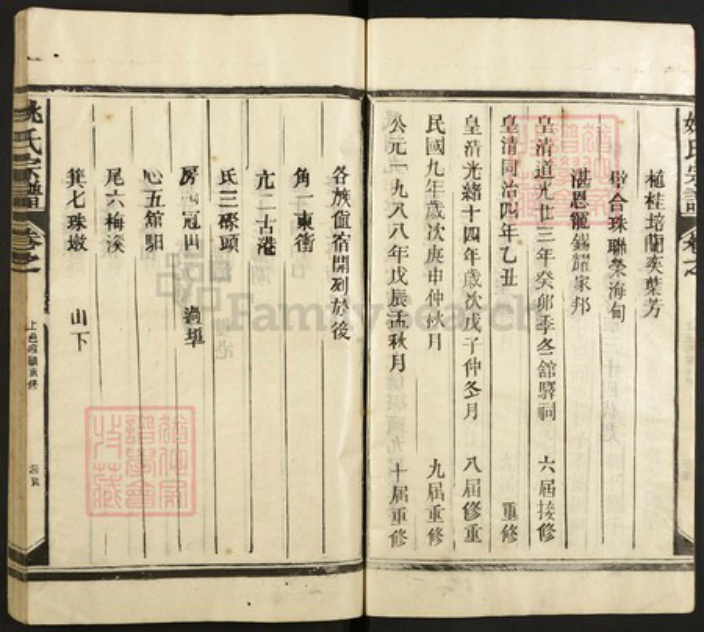 姚氏宗譜
卷之一
植桂培蘭奕葉芳
璧合珠聯榮海甸
湛恩寵錫耀家邦
皇清道光廿三年癸卯季冬舘驛祠 六屆接修
皇清同治四年乙丑 重修
皇清光緒十四年歲次戊子仲冬月 八屆修重
民國九年歲次庚申仲秋月 九屆重修
公元一九八八年戊辰孟秋月 十屆重修
各族值宿開列於後
角一東衝
亢二古港
氐三磜頭
房四冠田
心五舘馹
尾六梅溪
箕七珠墩 山下
姚氏宗譜
卷之一
FamilySearch